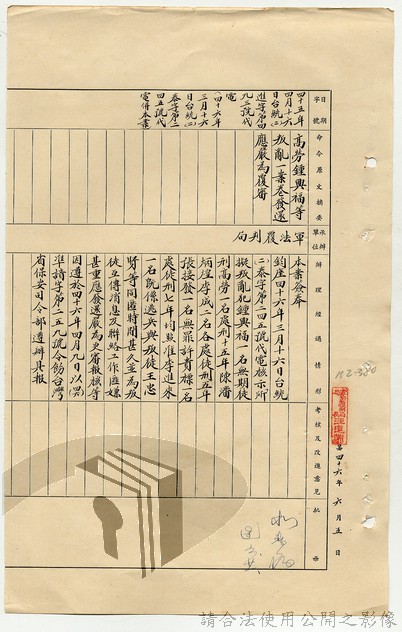 日期
字號
命令原文摘要
承辦單位
辦理經過情形
考核及改進意見
批示
四十五年
四月十六
日台統(二)
進字第四
九三號代
電
(四十六年
三月十六
日台統(二)
泰字第二
四五號代
電併本案
高勞鍾興福等
叛亂一案卷發還
應嚴為覆審
軍法覆判局
本案簽奉
鈞座四十六年三月十六日台統
(二)泰字第二四五號代電核示所
擬叛亂犯鍾興福一名無期徒
刑高勞一名處刑十五年陳潘
炳煌李成二名各處徒刑五年
張接發一名無罪許貴標一名
處徒刑七年均照准李進來
一名既係逃兵與叛徒王忠
賢等同匿時間甚久並為叛
徒互傳消息及聯絡工作匪嫌
甚重應發還嚴為復審報核等
因遵於四十六年四月九日以(46)
準靖字第二五九號令飭台灣
省保安司令部遵辦具報
第四十六年六月五日
12-380
請合法使用公開之影像